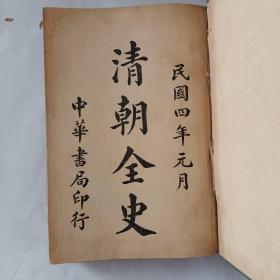 民國四年元月
清朝全史
中華書局印行